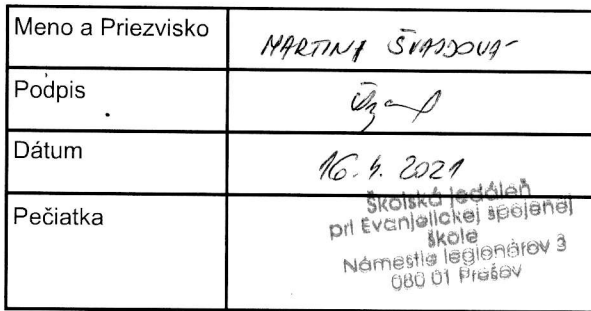 Meno a Priezvisko MARTINA ŠVAJDOVÁ
Podpis
Dátum 16. 4. 2021
Pečiatka
Školská jedáleň
pri Evanjelickej spojenej
škole
Námestie legionárov 3
080 01 Prešov